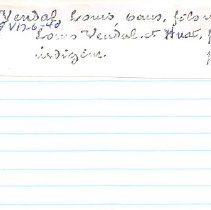 Vendal Louis sans, fils
V 17-6-40
Louis Vendal et Huet,
indigent.